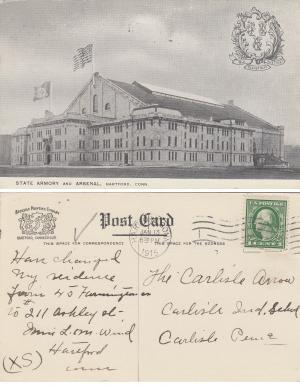 STATE ARMORY AND ARSENAL, HARTFORD, CONN.
Post Card
THIS SPACE FOR CORRESPONDENCE
THIS SPACE FOR THE ADDRESS
HARTFORD, CONNECTICUT
JAN 13
6 30 PM
1915
U.S. POSTAGE
1 CENT 1
Have changed
my residence
from 45 Farmington av
to 211 Ashley st.
Miss
Hartford
Conn
(XS)
The Carlisle Arrow
Carlisle Ind. School
Carlisle Penn